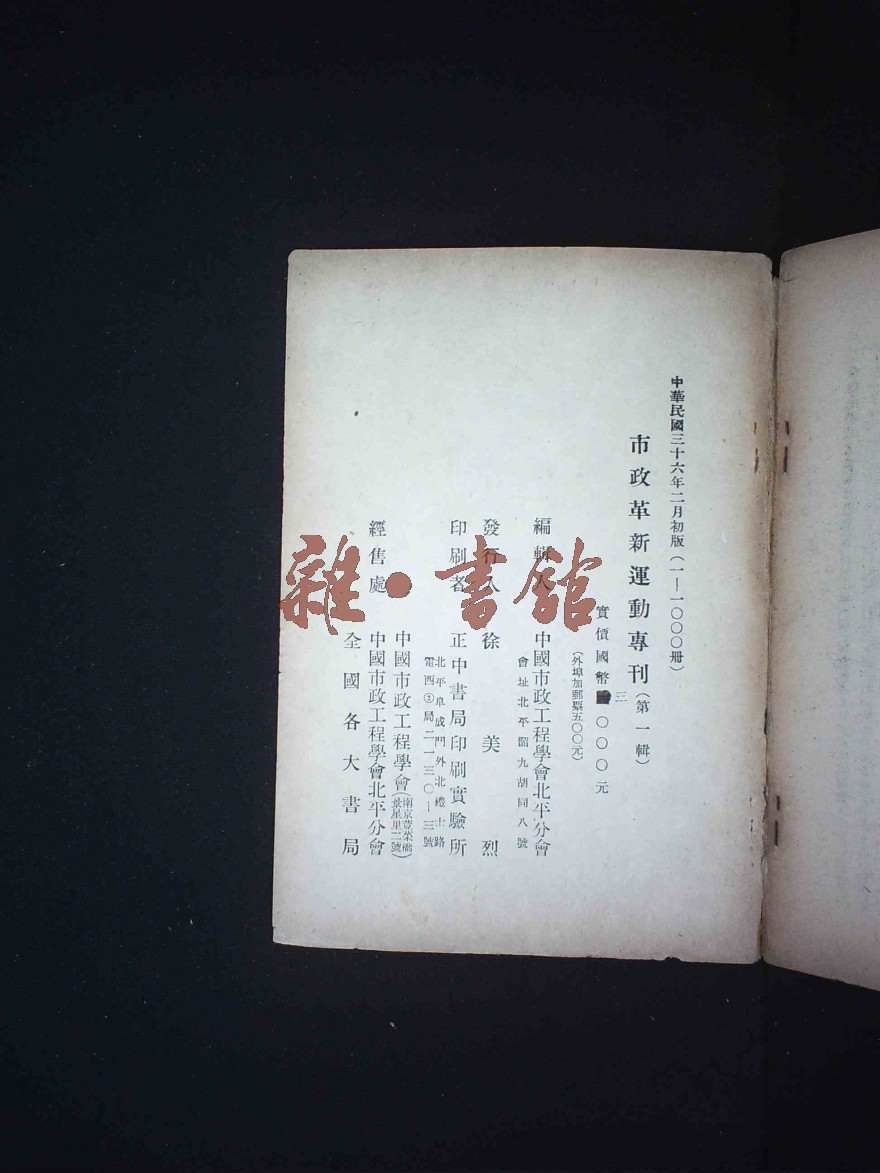 中華民國三十六年二月初版(一—一〇〇〇冊)
市政革新運動專刊(第一輯)
實價國幣三〇〇〇元
(外埠加郵票五〇〇元)
編輯人 中國市政工程學會北平分會
會址北平留九胡同八號
發行人 徐美烈
印刷者 正中書局印刷實驗所
北平阜成門外北禮士路
電西②局二一三〇—三號
經售處
中國市政工程學會(南京菜橋景星里二號)
中國市政工程學會北平分會
全國各大書局
雜·書館